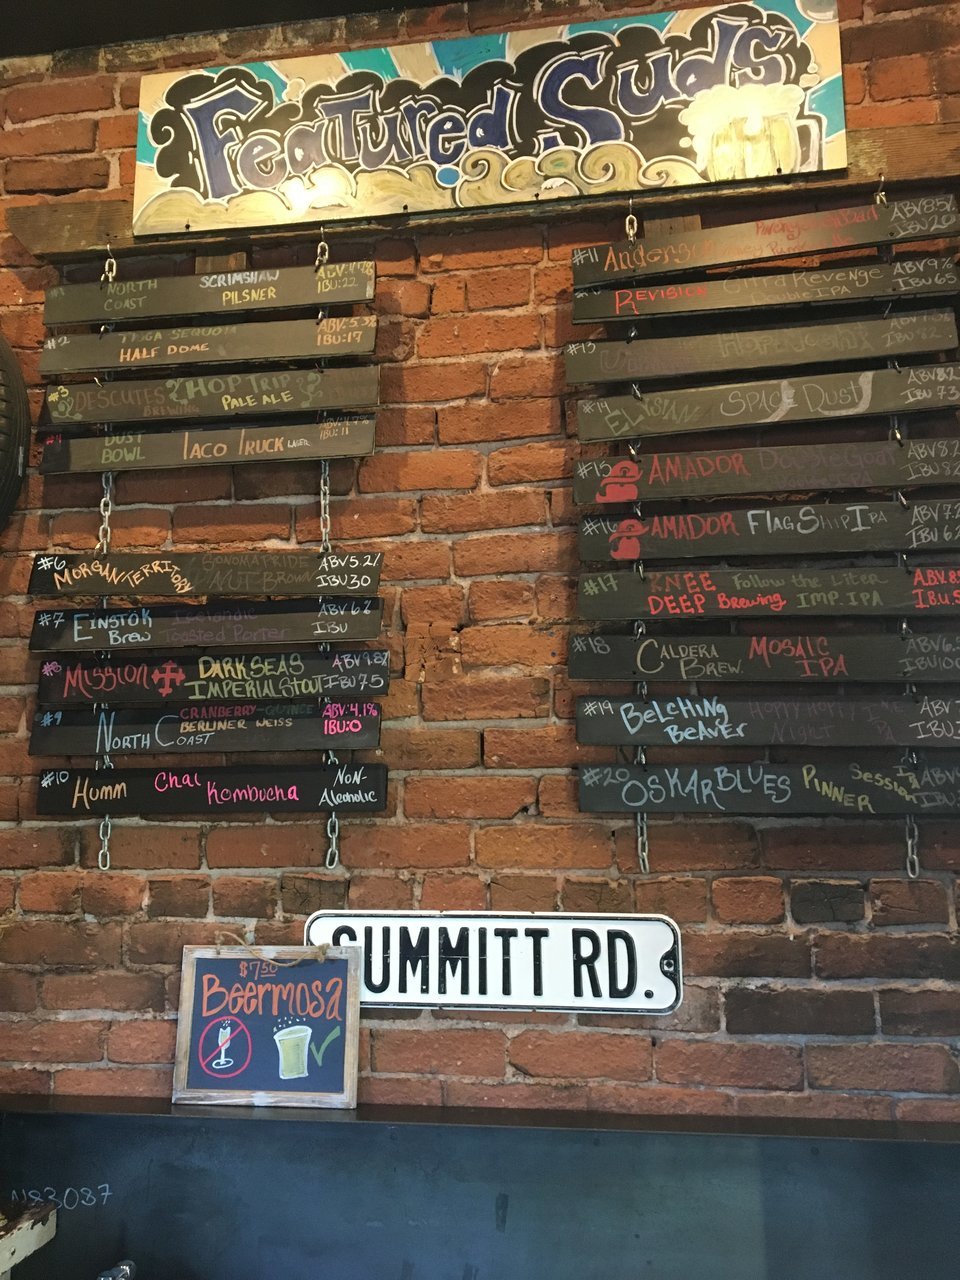 Featured Suds
NORTH COAST SCRIMSHAW PILSNER ABV:4.7% IBU:22
#2 SEQUOIA HALF DOME ABV:5.3% IBU:17
#3 DESCUTES BREWING HOP TRIP PALE ALE
DUST BOWL TACO TRUCK LAGER ABV:4.7% IBU:11
#6 MORGAN TERRITORY SONOMA PRIDE NUT BROWN ABV 5.2% IBU 30
#7 EINSTÖK BREW Icelandic Toasted Porter ABV 6% IBU
#8 MISSION DARK SEAS IMPERIAL STOUT ABV 9.8% IBU 75
#9 NORTH COAST CRANBERRY-QUINCE BERLINER WEISS ABV:4.1% IBU:0
#10 Humm Chai Kombucha NON-Alcoholic
#11 Anderson ABV 8.5% IBU 20
REVISION Citra Revenge Double IPA ABV 9% IBU 65
#13 Hop
#14 ELYSIAN SPACE DUST ABV 8.2 IBU 73
#15 AMADOR Double IPA ABV 8.2 IBU 82
#16 AMADOR FLAGSHIP IPA ABV 7.2 IBU
#17 KNEE DEEP Brewing Follow the Liter IMP. IPA ABV.8 I.B.U.
#18 CALDERA BREW. MOSAIC IPA ABV 6. IBU
#19 BELCHING BEAVER NIGHT ABV IBU
#20 OSKAR BLUES PINNER Session IPA ABV IBU
SUMMITT RD.
$7.50
Beermosa
N83087